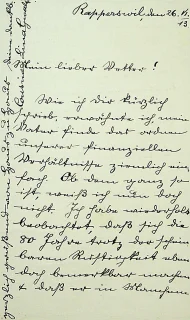 Rapperswil den 26. VI.
13.
Mein lieber Vetter!
Wie ich Dir kürzlich
schrieb, erwähnte ich mein
Vater finde das ordnen
unserer finanziellen
Verhältnisse ziemlich ein-
fach. Ob dem ganz so
ist, weiß ich nun doch
nicht. Ich habe wiederholt
beobachtet, daß sich die
80 Jahre trotz der schein-
baren Rüstigkeit eben
doch bemerkbar machen
& daß er in Manchem